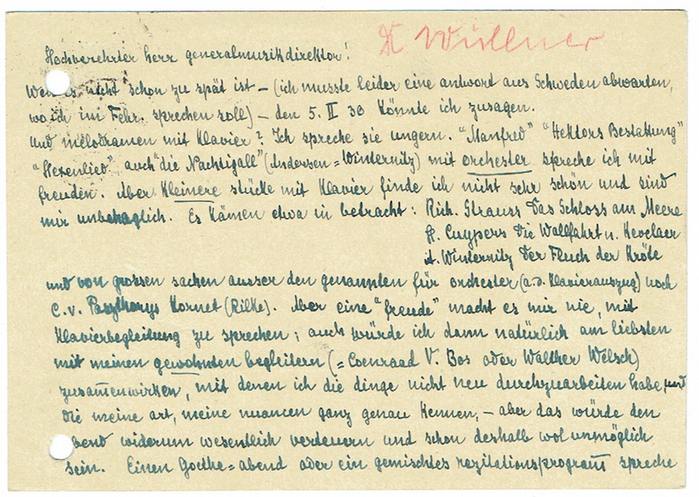 Dr Wüllner
Hochverehrter herr generalmusikdirektor!
Wenn es nicht schon zu spät ist – (ich musste leider eine antwort aus Schweden abwarten,
wo ich im Febr. sprechen soll) – den 5. II 30 könnte ich zusagen.
Und melodramen mit Klavier? Ich spreche sie ungern. "Manfred" "Hektors Bestattung"
"Hexenlied" auch "die Nachtigall" (Andersen = Winternitz) mit orchester spreche ich mit
freuden. Aber kleinere stücke mit Klavier finde ich nicht sehr schön und sind
mir unbehaglich. Es kämen etwa in betracht: Rich. Strauss Das Schloss am Meere
Cuypers Die Wallfahrt n. Kevelaer
Winternitz Der Fluch der Kröte
und von grossen sachen ausser den genannten für orchester (a.d. Klavierauszug) noch
C. v. Pászthorys Kornet (Rilke). Aber eine "freude" macht es mir nie, mit
Klavierbegleitung zu sprechen; auch würde ich dann natürlich am liebsten
mit meinen gewohnten begleitern (= Coenraad V. Bos oder Walther Welsch)
zusam̄enwirken, mit denen ich die dinge nicht neu durchzuarbeiten habe, und
die meine art, meine nuancen ganz genau kennen, – aber das würde den
abend widerum wesentlich verteuern und schon deshalb wol unmöglich
sein. Einen Goethe=abend oder ein gemischtes rezitationsprogram̄ spreche